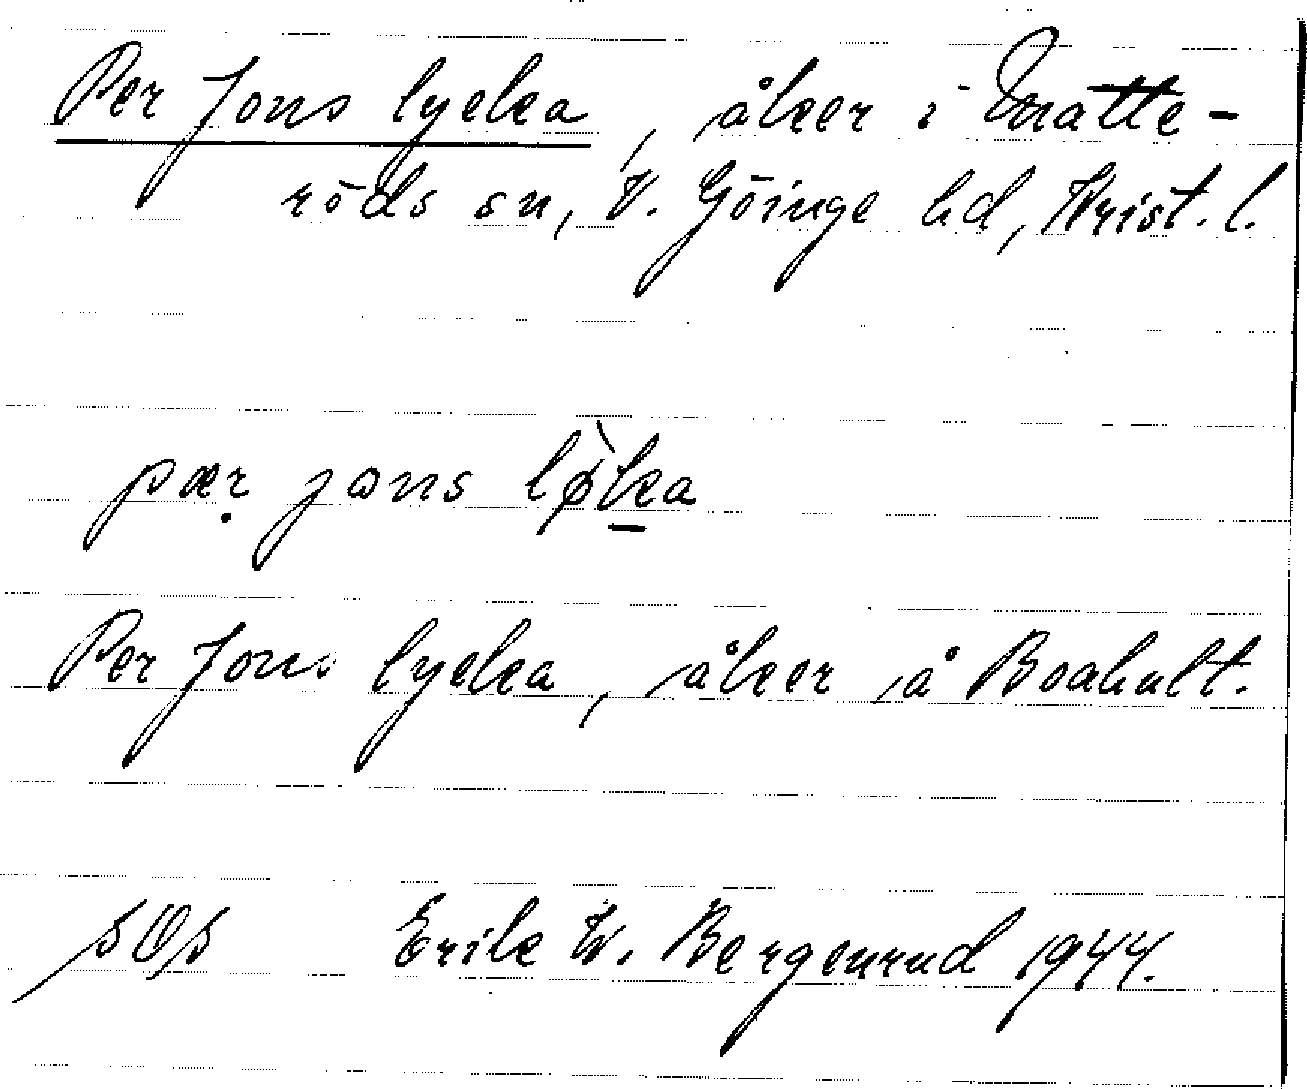 Per Jons lycka, åker i Matte-
röds sn, V. Göinge hd, Krist. l.
pær jons lø̀ka
Per Jons lycka, åker å Boahult.
SOS Erik W. Bergenrud 1944.